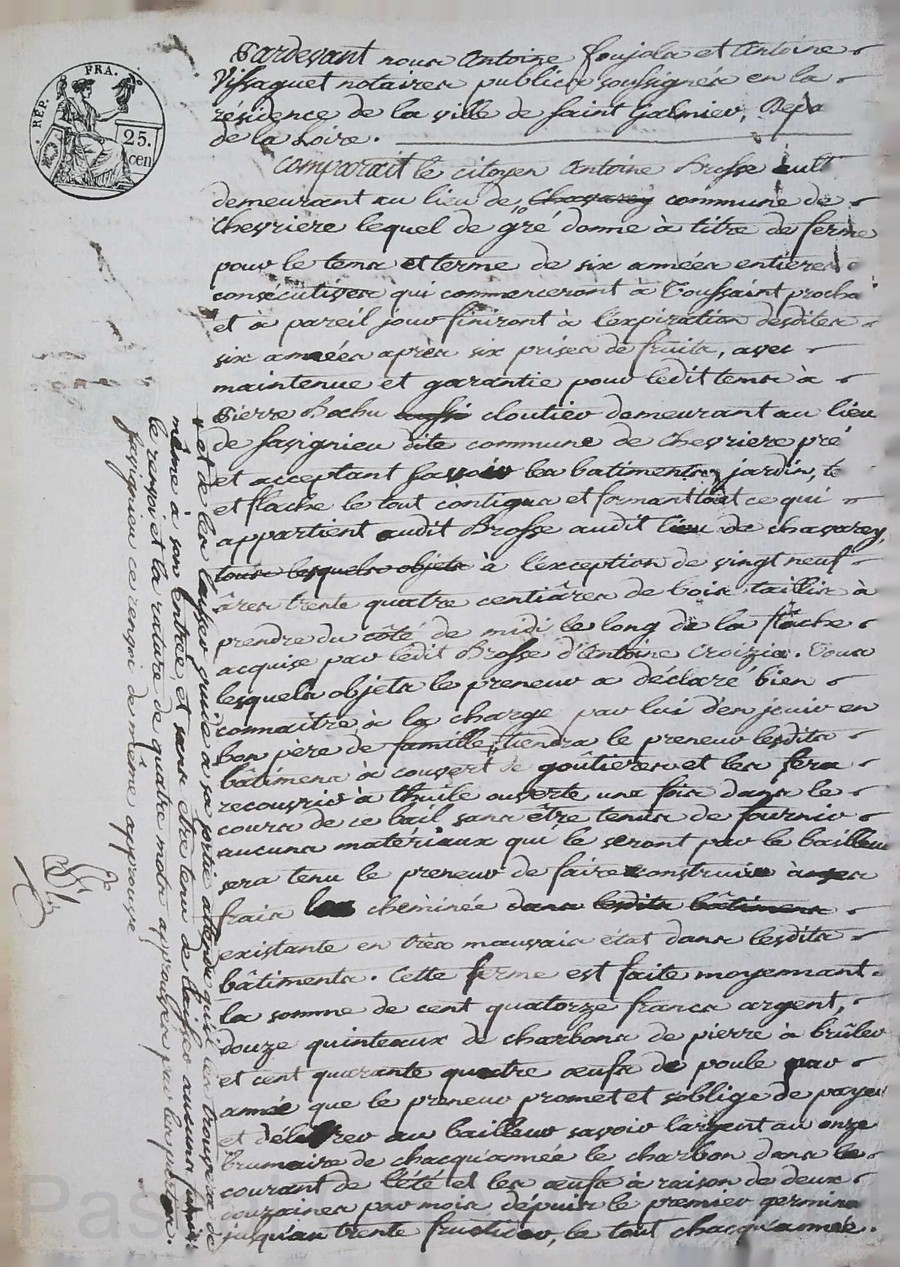 RÉP. FRA.
25.
cen
Pardevant nous Antoine Foujols et Antoine
Vissaguet notaires publics soussignés en la
résidence de la ville de saint Galmier, Dépa
de la Loire.
Comparait le citoyen Antoine Brosse cult
demeurant au lieu de Chavarey commune de
Chevriere lequel de gré donne à titre de ferme
pour le tems et terme de six années entieres
consécutives qui commenceront à Toussaint procha
et à pareil jour finiront à l'expiration desdites
six années après six prises de fruits, avec
maintenue et garantie pour ledit tems à
Pierre Bochu cloutier demeurant au lieu
de favignieu dite commune de Chevriere pré
et acceptant savoir les batiments, jardin, té
et flache le tout contigus et formant tout ce qui
appartient audit Brosse audit lieu de chavarey,
tous lesquels objets à l'exception de vingt neuf
âres trente quatre centiâres de bois taillis à
prendre du côté de midi le long de la flache
acquise par ledit Brosse d'Antoine Croizier. Tous
lesquels objets le preneur a déclaré bien
connaitre à la charge par lui d'en jouir en
bon père de famille, tiendra le preneur lesdits
bâtimens à couvert de goûtieres et les fera
recouvrir à thuile ouverte une fois dans le
cours de ce bail sans être tenus de fournir
aucuns matériaux qui le seront par le bailleur
sera tenu le preneur de faire construire à ses
frais la cheminée dans lesdits bâtimens
existante en très mauvais état dans lesdits
bâtiments. Cette ferme est faite moyennant
la somme de cent quatorze francs argent,
douze quinteaux de charbons de pierre à brûler
et cent quarante quatre œufs de poule par
année que le preneur promet et s'oblige de payer
et délivrer au bailleur savoir l'argent au onze
brumaire de chacqu'année le charbon dans le
courant de l'été et les œufs à raison de deux
douzaines par mois dépuis le premier germina
jusqu'au trente fructidor, le tout chacqu'année.
+ et de les laisser à sa sortie attendu qu'il en trouvera de
même à son entrée et sans être tenu de laisser aucuns
le renvoi et la rature de quatre mots approuvés par les parties.
favignieu ce renvoi de même approuvé